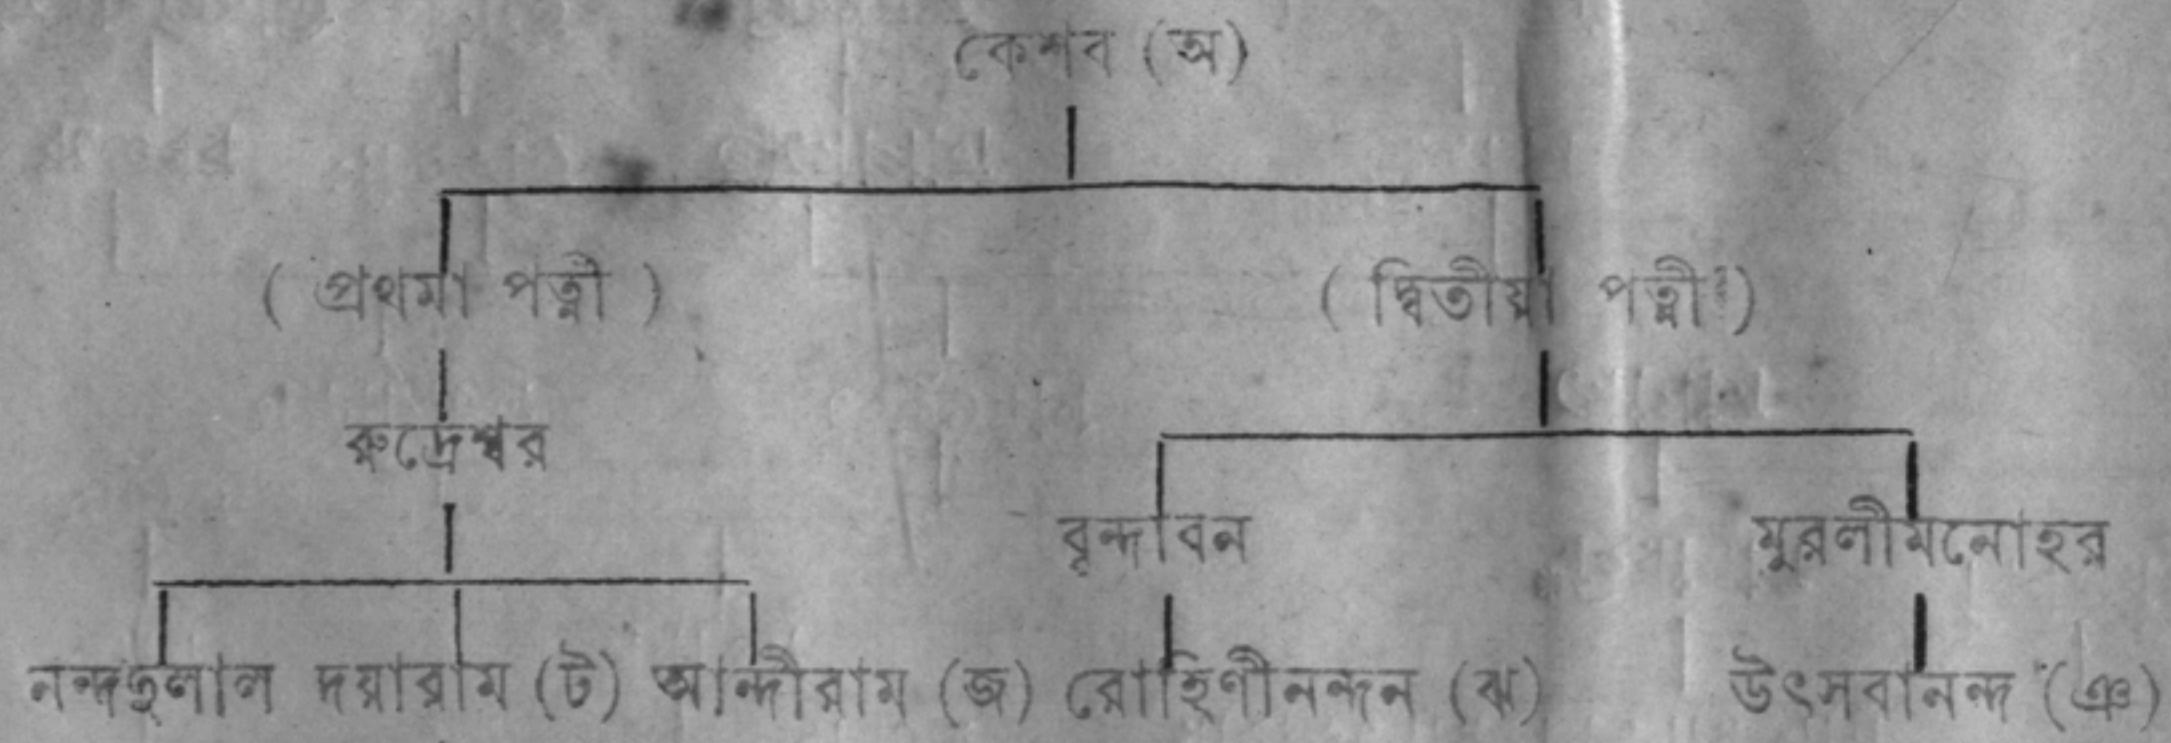 কেশব (অ)
( প্রথমা পত্নী ) ( দ্বিতীয়া পত্নী )
রুদ্রেশ্বর
বৃন্দাবন মুরলীমনোহর
নন্দদুলাল দয়ারাম (ট) আনন্দীরাম (জ) রোহিণীনন্দন (ঝ) উৎসবানন্দ (ঞ)